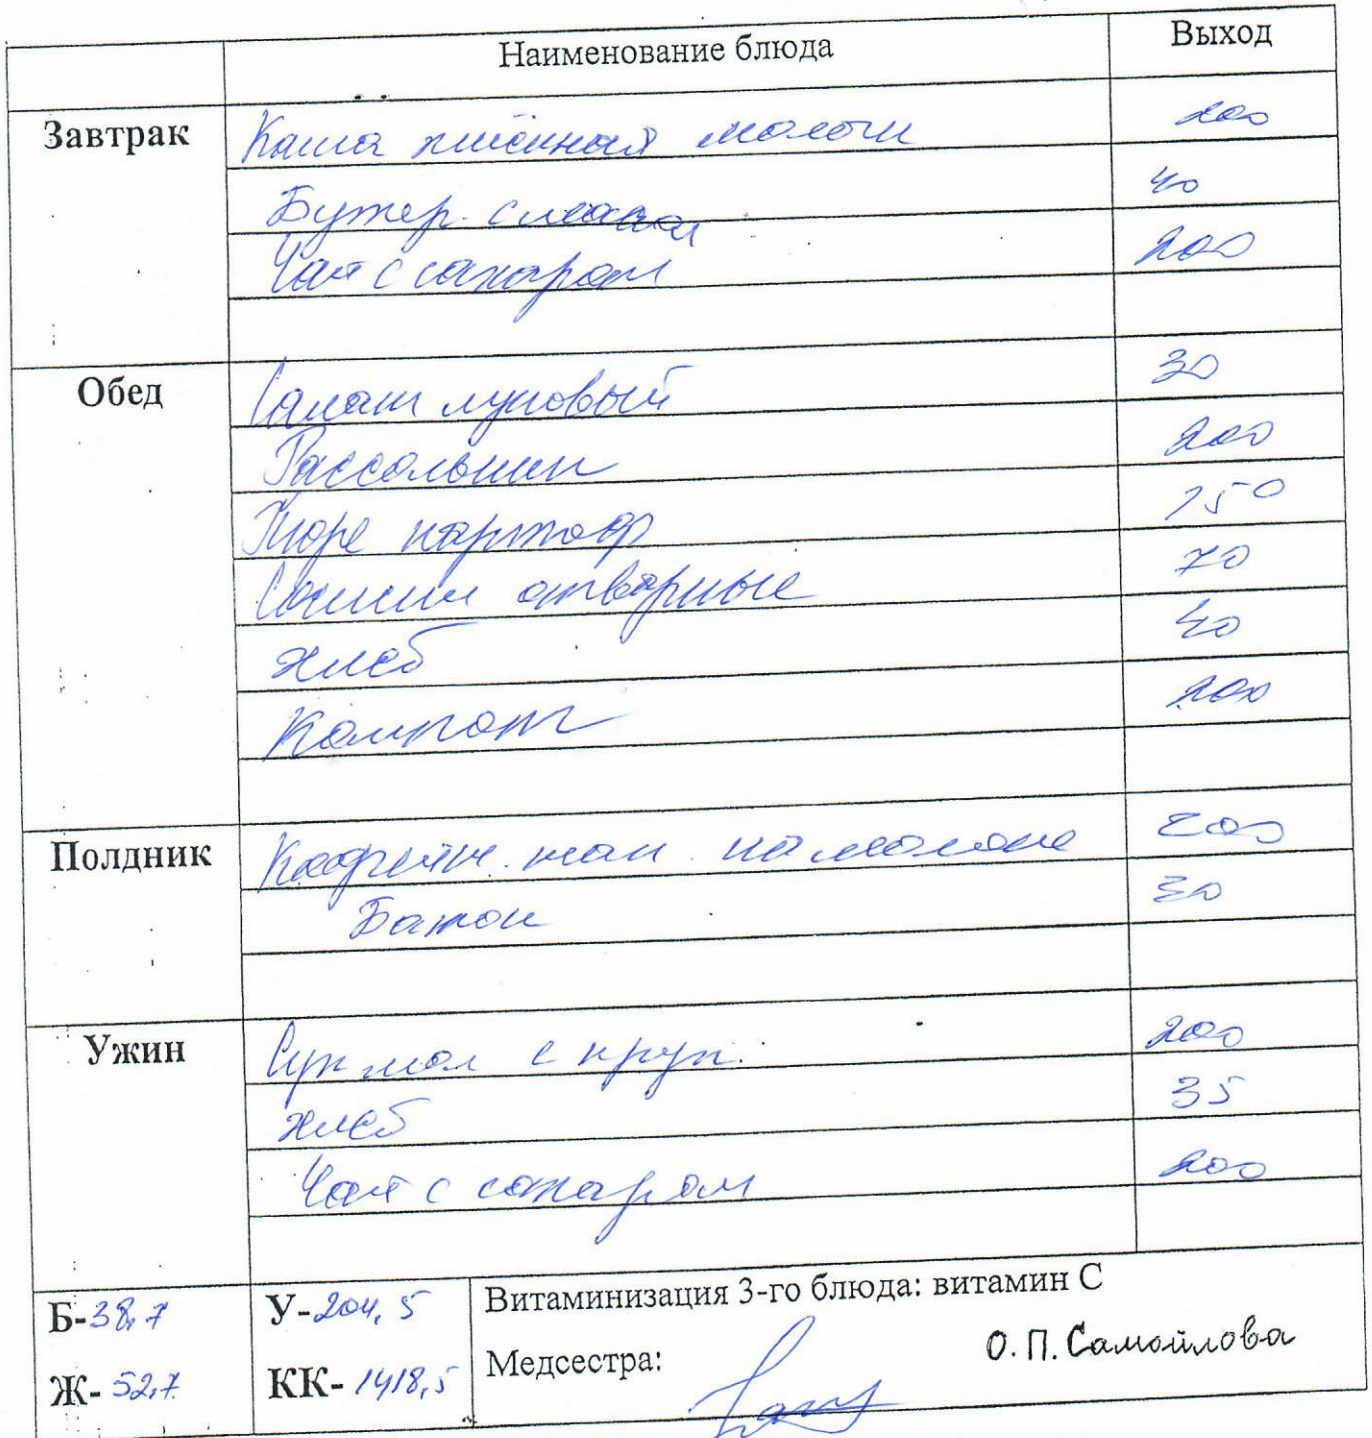 Наименование блюда Выход
Завтрак Каша пшённая молочн 200
Бутер. с маслом 40
Чай с сахаром 200
Обед Салат луковый 30
Рассольник 200
Пюре картоф 150
Сосиски отварные 70
Хлеб 40
Компот 200
Полдник Кофейн. нап. на молоке 200
Батон 30
Ужин Суп мол с круп. 200
Хлеб 35
Чай с сахаром 200
Б-38,7 У-204,5 Витаминизация 3-го блюда: витамин С
Ж-52,7 КК-1418,5 Медсестра: О.П.Самойлова